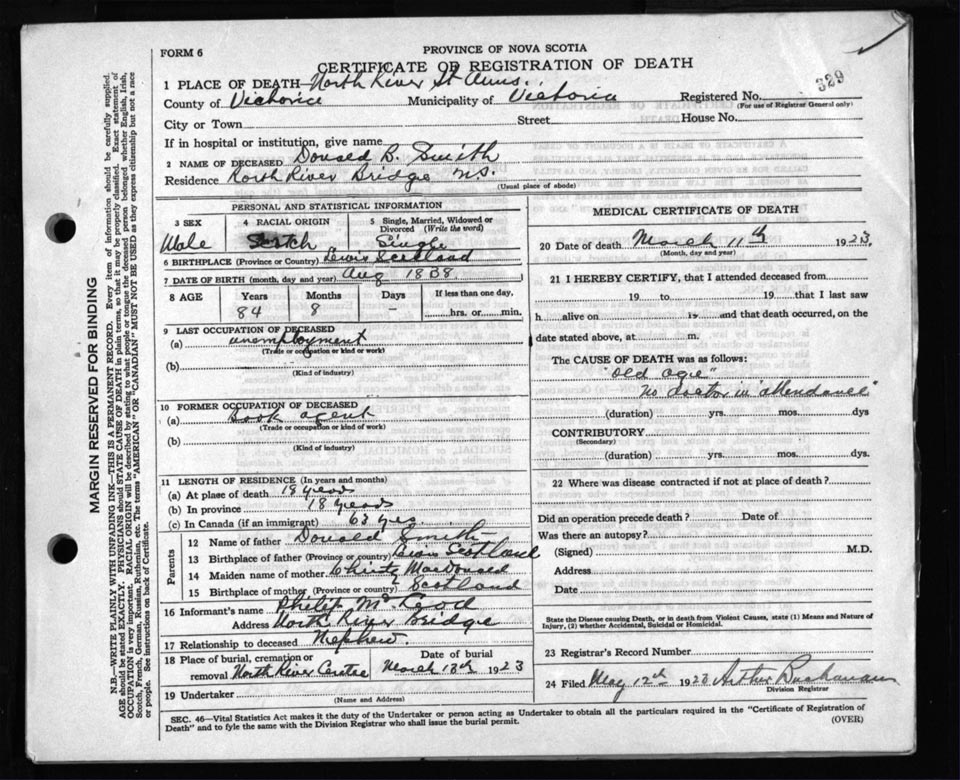 FORM 6
PROVINCE OF NOVA SCOTIA
CERTIFICATE OR REGISTRATION OF DEATH
329
1 PLACE OF DEATH North River St Anns.
County of Victoria Municipality of Victoria Registered No.
(For use of Registrar General only)
City or Town Street House No.
If in hospital or institution, give name
2 NAME OF DECEASED Donald B. Smith
Residence North River Bridge N.S.
(Usual place of abode)
PERSONAL AND STATISTICAL INFORMATION
3 SEX 4 RACIAL ORIGIN 5 Single, Married, Widowed or Divorced (Write the word)
Male Scotch Single
6 BIRTHPLACE (Province or Country) Lewis Scotland
7 DATE OF BIRTH (month, day and year) Aug 1838
8 AGE Years Months Days If less than one day,
84 8 - hrs. or min.
9 LAST OCCUPATION OF DECEASED
(a) unemployment
(Trade or occupation or kind of work)
(b)
(Kind of industry)
10 FORMER OCCUPATION OF DECEASED
(a) Book agent
(Trade or occupation or kind of work)
(b)
(Kind of industry)
11 LENGTH OF RESIDENCE (In years and months)
(a) At place of death 18 years
(b) In province 18 years
(c) In Canada (if an immigrant) 63 yrs.
Parents
12 Name of father Donald Smith
13 Birthplace of father (Province or country) Lewis Scotland
14 Maiden name of mother Christy MacDonald
15 Birthplace of mother (Province or country) Scotland
16 Informant's name Philip McLeod
Address North River Bridge
17 Relationship to deceased Nephew.
18 Place of burial, cremation or removal North River Centre Date of burial March 13th 1923
19 Undertaker
(Name and Address)
MEDICAL CERTIFICATE OF DEATH
20 Date of death March 11th 1923.
(Month, day and year)
21 I HEREBY CERTIFY, that I attended deceased from
19 to 19 that I last saw
h alive on 19 and that death occurred, on
date stated above, at m.
The CAUSE OF DEATH was as follows:
"old age"
no doctor in "attendance"
(duration) yrs. mos. dys
CONTRIBUTORY
(Secondary)
(duration) yrs. mos. dys.
22 Where was disease contracted if not at place of death?
Did an operation precede death? Date of
Was there an autopsy?
(Signed) M.D.
Address
Date
State the Disease causing Death, or in death from Violent Causes, state (1) Means and Nature of
Injury, (2) whether Accidental, Suicidal or Homicidal.
23 Registrar's Record Number
24 Filed May 12th 1923 Arthur Buchanan
Division Registrar
SEC. 46—Vital Statistics Act makes it the duty of the Undertaker or person acting as Undertaker to obtain all the particulars required in the "Certificate of Registration of
Death" and to fyle the same with the Division Registrar who shall issue the burial permit.
(OVER)
MARGIN RESERVED FOR BINDING
N.B.—WRITE PLAINLY WITH UNFADING INK—THIS IS A PERMANENT RECORD. Every item of information should be carefully supplied.
AGE should be stated EXACTLY. PHYSICIANS should STATE CAUSE OF DEATH in plain terms, so that it may be properly classified. Exact statement of
OCCUPATION is very important. RACIAL ORIGIN will be described by stating to what people or tongue the deceased person belonged whether English, Irish,
Scotch, French, German, Russian, Ruthenian, etc. The terms "AMERICAN" OR "CANADIAN" MUST NOT BE USED as they express citizenship but not a race
or people. See instructions on back of Certificate.